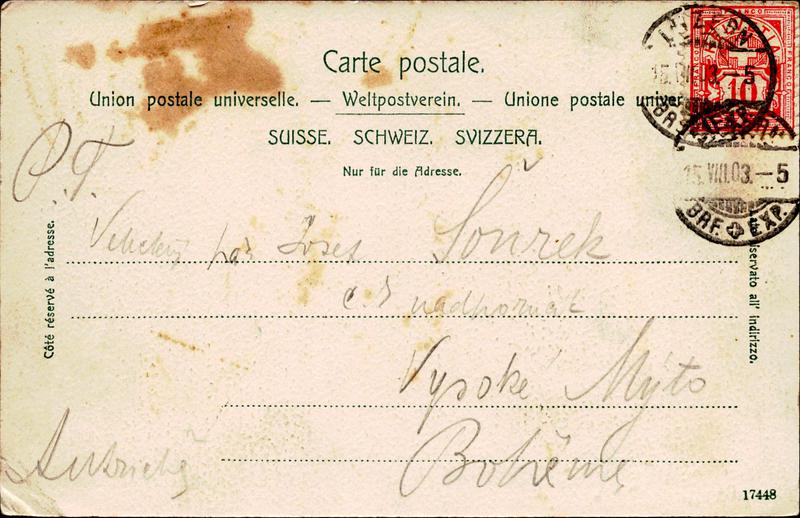 Carte postale.
Union postale universelle. — Weltpostverein. — Unione postale univer
SUISSE. SCHWEIZ. SVIZZERA.
Nur für die Adresse.
FRANCO
10
15.VIII.03.–5
BRF. EXP.
P.T.
pán Josef Šourek
Vysoké Mýto
Bohême
Côté réservé à l'adresse.
riservato all' indirizzo.
17448